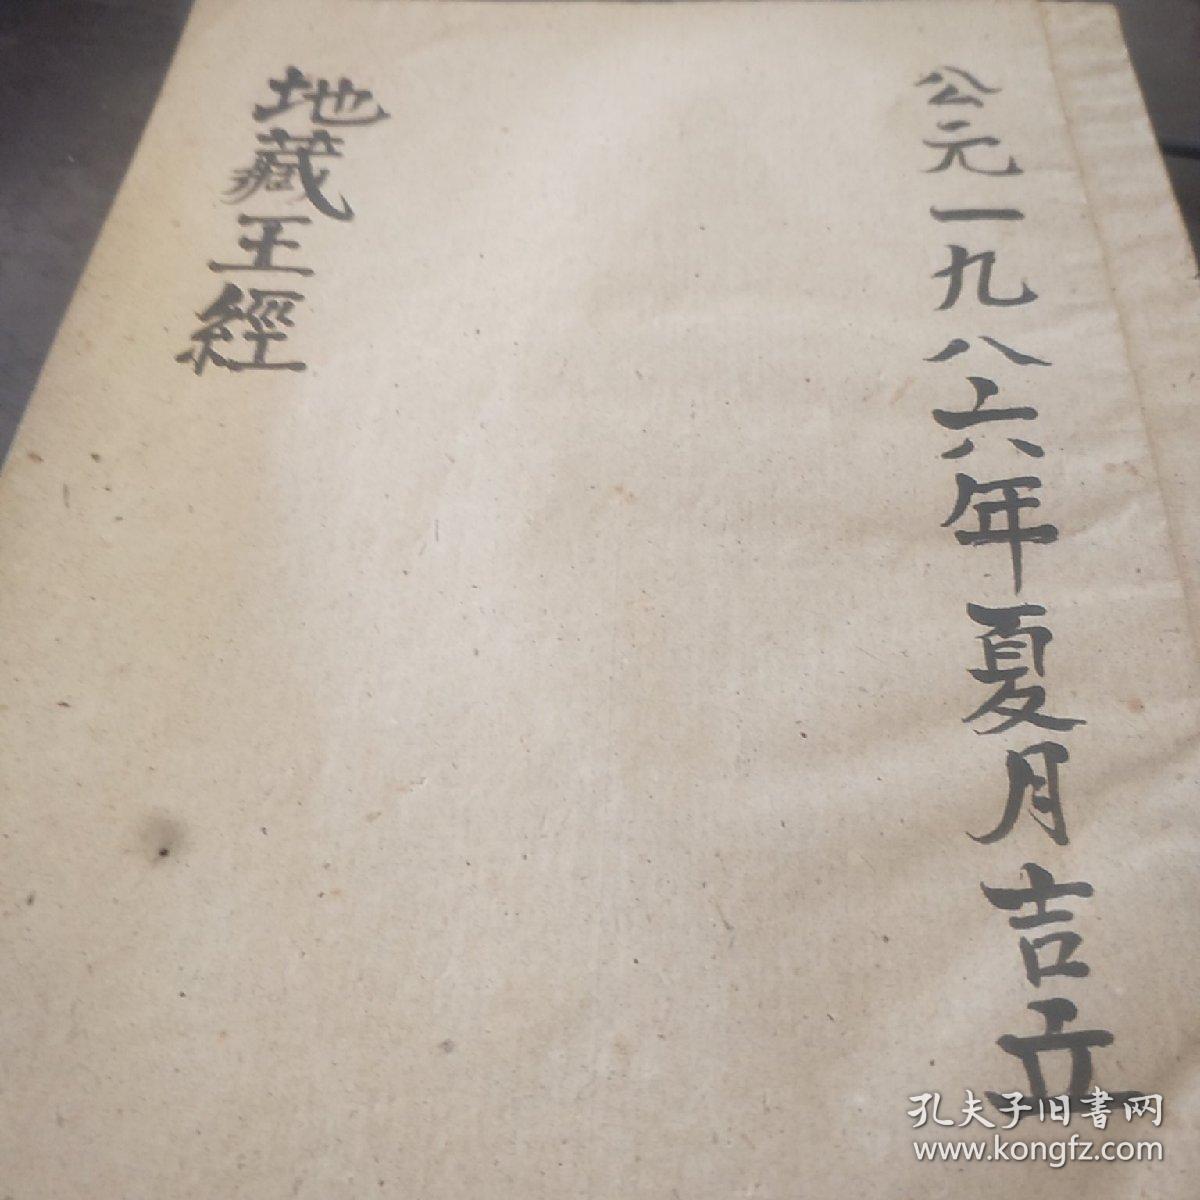 公元一九八六年夏月吉立
地藏王經
孔夫子旧書网
www.kongfz.com